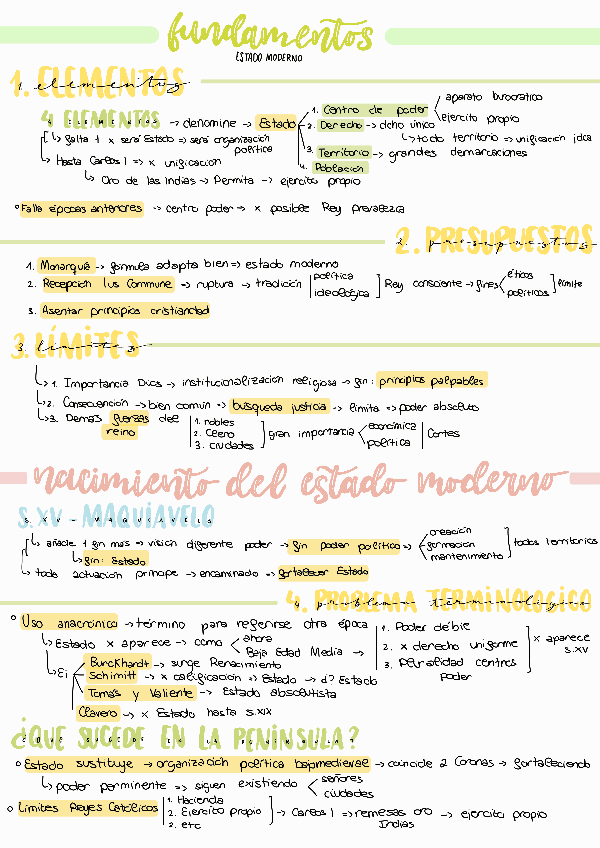 fundamentos
ESTADO MODERNO
1. ELEMENTOS
elementos
4 ELEMENTOS → denomine → Estado
1. Centro de poder
aparato burocratico
ejercito propio
2. Derecho → dcho único
↳ todo territorio → unificación idca
3. Territorio → grandes demarcaciones
4. Población
↳ falta 1 x será Estado ⇒ será organización política
↳ Hasta Carlos I ⇒ x unificación
↳ Oro de las Indias → Permita → ejercito propio
° Falla épocas anteriores → centro poder → x posible Rey prevalezca
2. PRESUPUESTOS
presupuestos
1. Monarquía → formula adopta bien ⇒ estado moderno
2. Recepción Ius Commune ⇒ ruptura → tradición | política ideológica ] Rey consciente → fines < éticos políticos ] límite
3. Asentar principios cristiandad
3. LÍMITES
límites
↳ 1. Importancia Dios → institucionalización religiosa → fin: principios palpables
↳ 2. Consecuención → bien común ⇒ busqueda justicia → límite ⇒ poder absoluto
↳ 3. Demás fuerzas del reino
1. nobles
2. Clero
3. ciudades
gran importancia < económica política | Cortes
nacimiento del estado moderno
S.XV - MAQUIAVELO
S.XV - MAQUIAVELO
↳ añade 1 fin más → visión diferente poder → fin poder político ⇒
creación
formación
mantenimiento
todos territorios
↳ fin: Estado
↳ toda actuación príncipe → encaminado ⇒ fortalecer Estado
4. PROBLEMA TERMINOLÓGICO
problema terminológico
° Uso anacrónico → término para referirse otra época
↳ Estado x aparece → como < ahora Baja Edad Media →
1. Poder débil
2. x derecho uniforme
3. Pluralidad centros poder
x aparece S.XV
↳ Ej
Burckhardt → surge Renacimiento
Schimitt → x calificación ⇒ Estado → d? Estado
Tomás y Valiente → Estado absolutista
Clavero → x Estado hasta S.XIX
¿QUÉ SUCEDE EN LA PENÍNSULA?
¿QUÉ SUCEDE EN LA PENÍNSULA?
° Estado sustituye → organización política bajomedieval → coincide 2 Coronas → fortaleciendo
↳ poder permanente ⇒ siguen existiendo < señores ciudades
° Límites Reyes Católicos
1. Hacienda
2. Ejército propio
2. etc
→ Carlos I ⇒ remesas oro Indias → ejercito propio